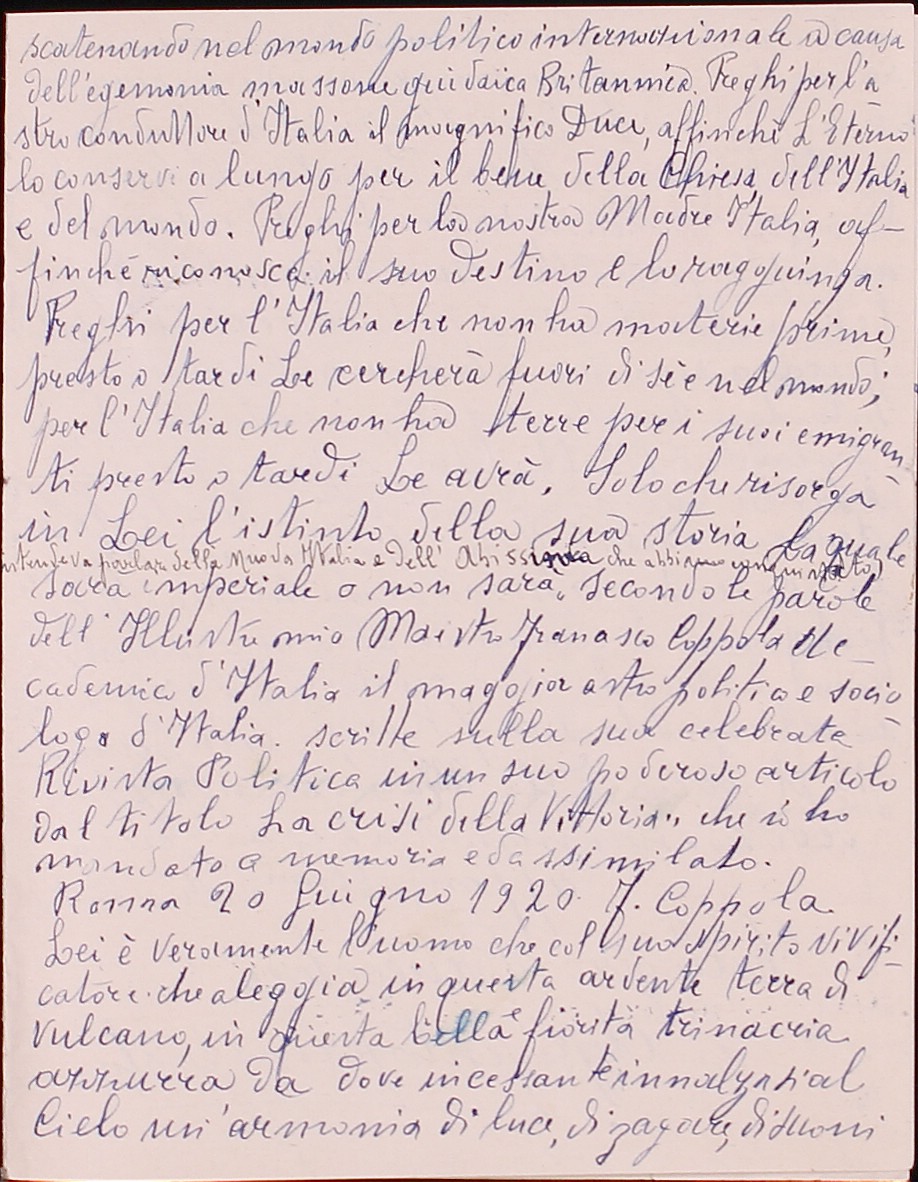 scatenando nel mondo politico internazionale a causa
dell'egemonia massone guidaica Britannica. Preghi per l'a
stro conduttore d'Italia il magnifico Duce, affinché L'Eterno
lo conservi a lungo per il bene della Chiesa, dell'Italia
e del mondo. Preghi per la nostra Madre Italia, af-
finché riconosca il suo destino e lo raggiunga.
Preghi per l'Italia che non ha materie prime,
presto o tardi Le cercherà fuori di sé e nel mondo;
per l'Italia che non ha terre per i suoi emigran
ti presto o tardi Le avrà. Solo che risorga
in Lei l'istinto della sua storia La quale
intendeva parlare della Nuova Italia e dell'Abissinia che abbiamo conquistato)
sarà imperiale o non sarà" secondo le parole
dell'Illustre mio Maestro Francesco Coppola Ac-
cademico d'Italia il maggior astro politico e socio
logo d'Italia. scritte sulla sua celebrata
Rivista Politica in un suo poderoso articolo
dal titolo La crisi della Vittoria" che io ho
mandato a memoria ed assimilato.
Roma 20 Giugno 1920. F. Coppola.
Lei è veramente l'uomo che col suo spirito vivifi-
catore che aleggia in questa ardente terra di
Vulcano, in questa bella e fiorita trinacria
azzurra da dove incessante innalzasi al
Cielo un'armonia di luce, di zagare, di suoni